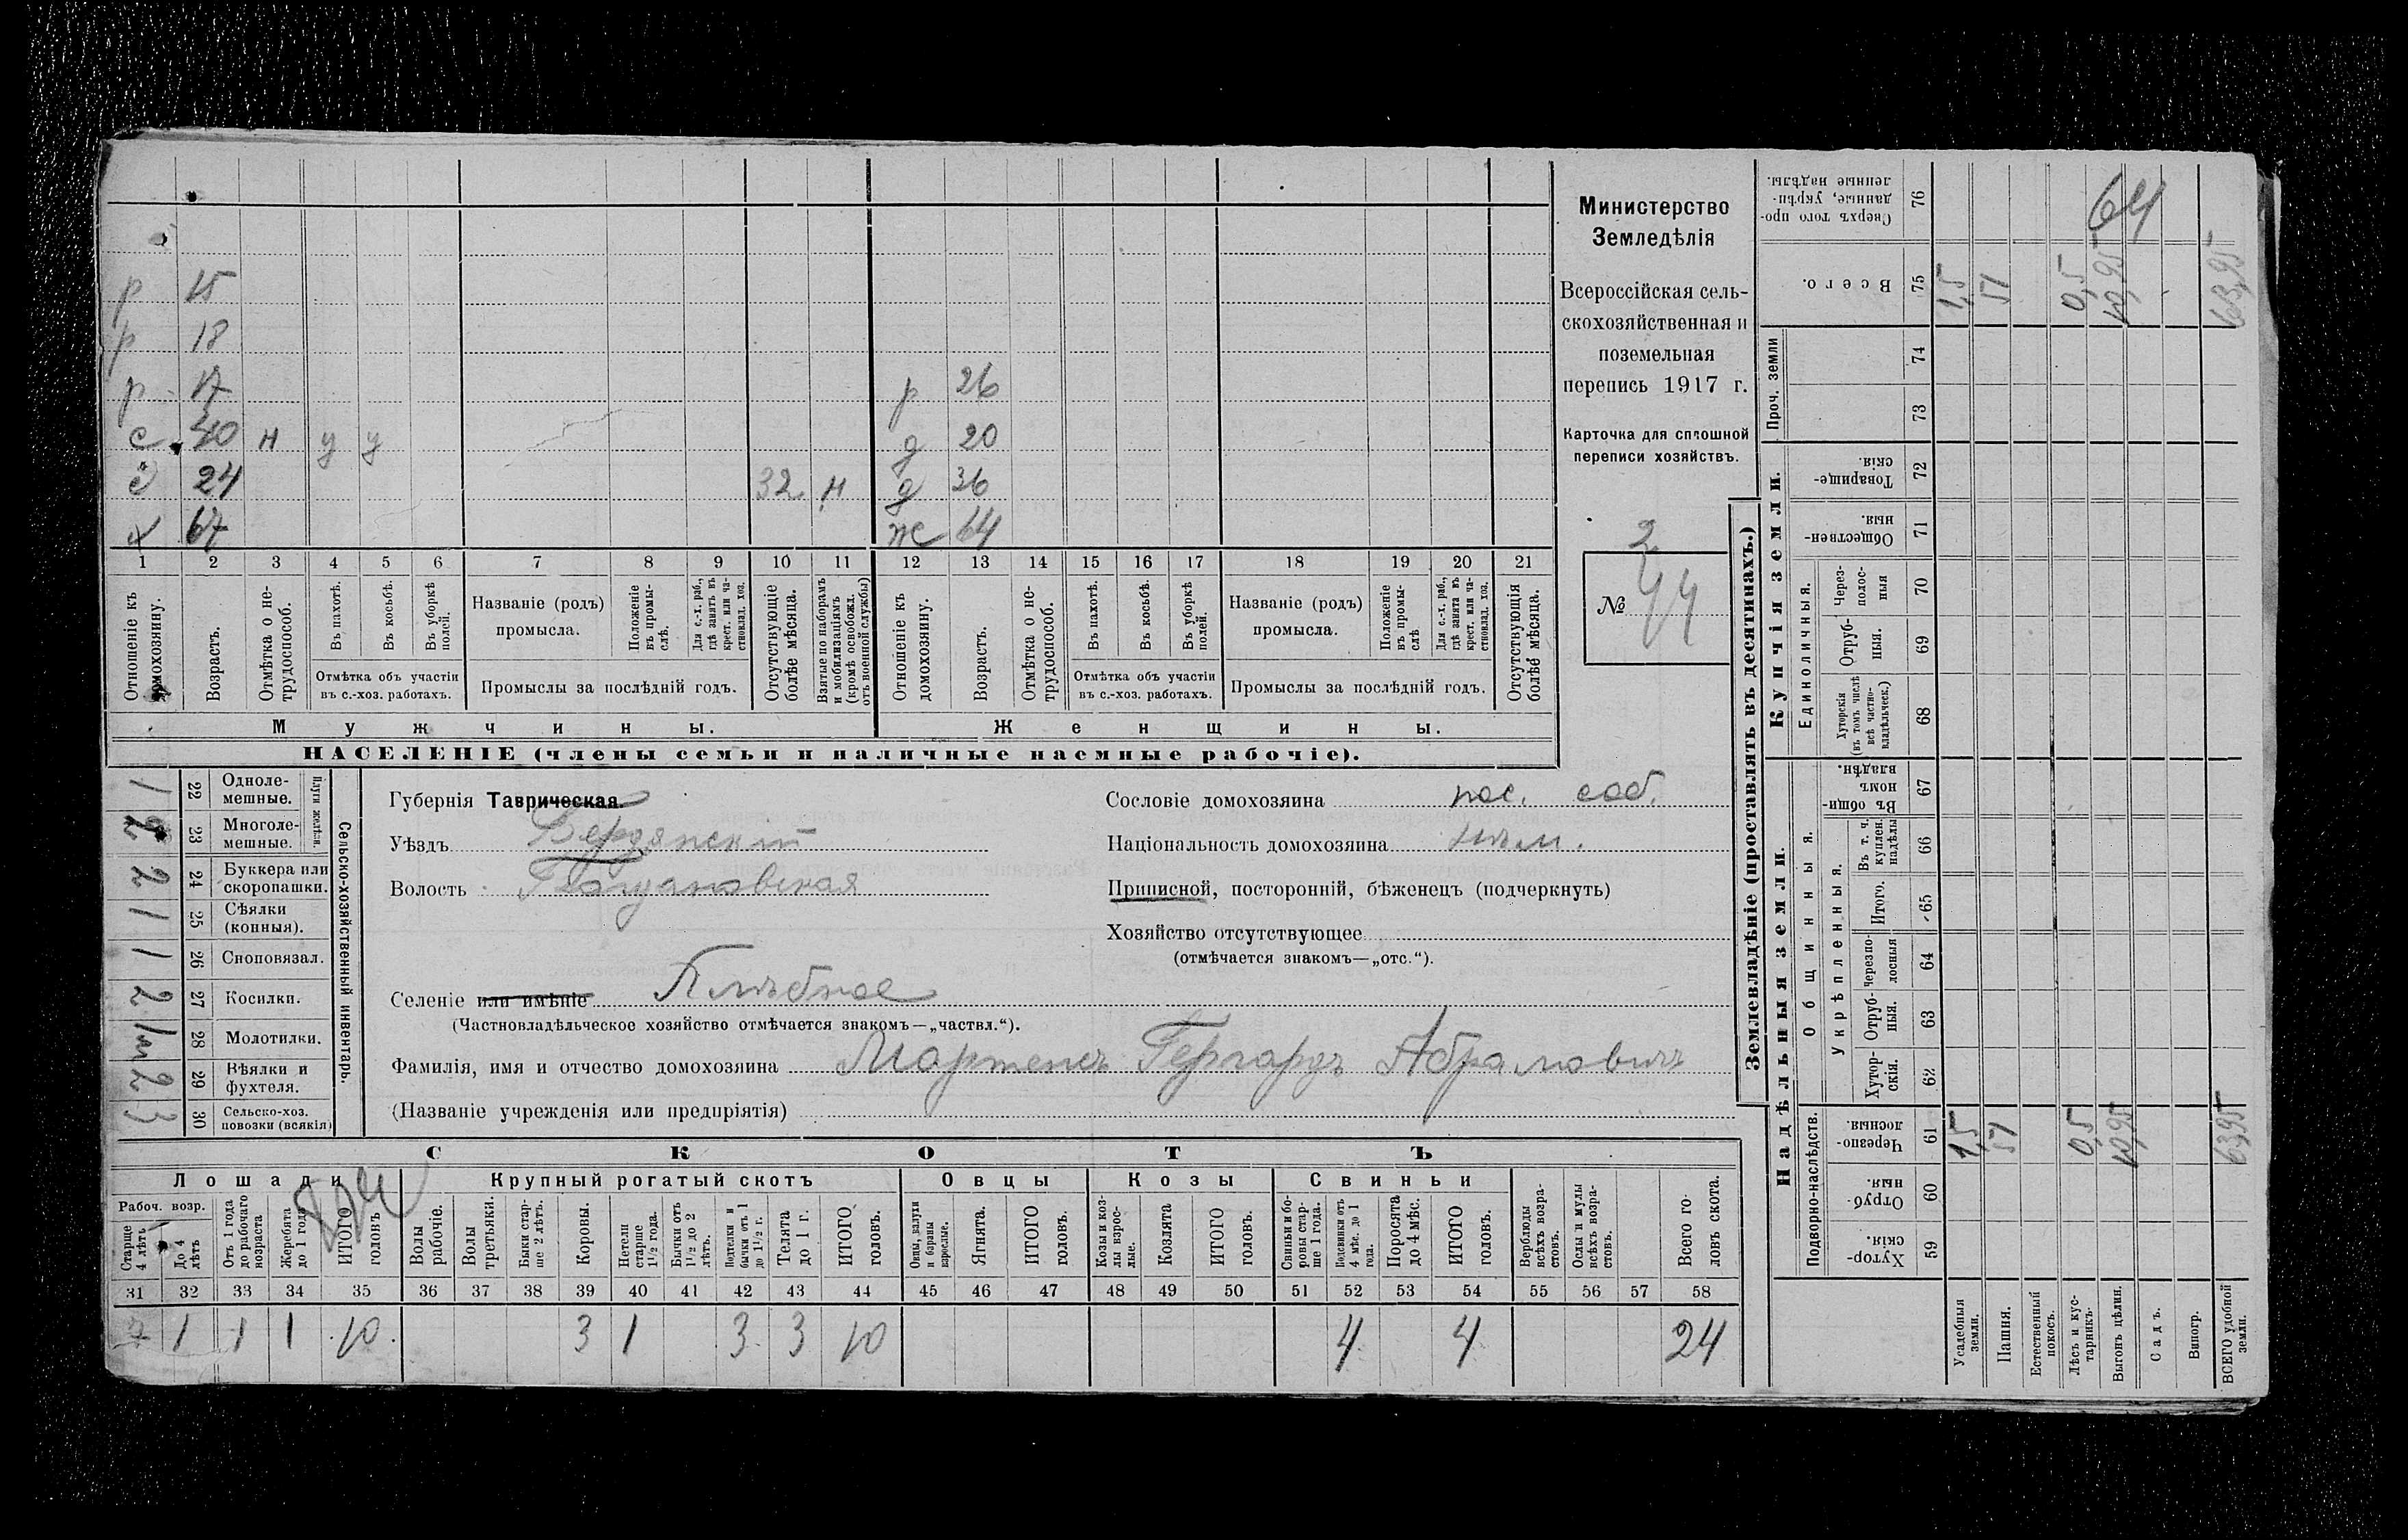 р 15
р 18
р 17 р 26
с 40 н у у д 20
с 24 32 н д 36
х 67 ж 64
1 2 3 4 5 6 7 8 9 10 11 12 13 14 15 16 17 18 19 20 21
Отношеніе къ домохозяину.
Возрастъ.
Отмѣтка о не-трудоспособ.
Въ пахотѣ.
Въ косьбѣ.
Въ уборкѣ полей.
Отмѣтка объ участіи
въ с.-хоз. работахъ.
Названіе (родъ)
промысла.
Положеніе въ промы-слѣ.
Для с.-х. раб., гдѣ занятъ въ крест. или ча-стновлад. хоз.
Промыслы за послѣдній годъ.
Отсутствующіе болѣе мѣсяца.
Взятые по наборамъ и мобилизаціямъ (кромѣ освобожд. отъ военной службы)
Отношеніе къ домохозяину.
Возрастъ.
Отмѣтка о не-трудоспособ.
Въ пахотѣ.
Въ косьбѣ.
Въ уборкѣ полей.
Отмѣтка объ участіи
въ с.-хоз. работахъ.
Названіе (родъ)
промысла.
Положеніе въ промы-слѣ
Для с.-х. раб., гдѣ занята въ крест. или ча-стновлад. хоз.
Промыслы за послѣдній годъ.
Отсутствующія болѣе мѣсяца.
Мужчины. Женщины.
НАСЕЛЕНІЕ (члены семьи и наличные наемные рабочіе).
Министерство
Земледѣлія
Всероссійская сель-
скохозяйственная и
поземельная
перепись 1917 г.
Карточка для сплошной
переписи хозяйствъ.
2
№ 44
1 22 Одноле-мешные.
2 23 Многоле-мешные.
Плуги желѣзн.
2 24 Буккера или скоропашки.
1 25 Сѣялки (конныя).
1 26 Сноповязал.
2 27 Косилки.
28 Молотилки.
2 29 Вѣялки и фухтеля.
3 30 Сельско-хоз. повозки (всякія)
Сельско-хозяйственный инвентарь.
Губернія Таврическая.
Уѣздъ Бердянскій
Волость Богдановская
Сословіе домохозяина пос. соб.
Національность домохозяина нѣм.
Приписной, посторонній, бѣженецъ (подчеркнуть)
Хозяйство отсутствующее
(отмѣчается знакомъ—„отс.“).
Селеніе или имѣніе
(Частновладѣльческое хозяйство отмѣчается знакомъ—„частвл.“).
Фамилія, имя и отчество домохозяина Мартенсъ Гергардъ Абрамовичъ
(Названіе учрежденія или предпріятія)
СКОТЪ
Лошади Крупный рогатый скотъ Овцы Козы Свиньи
Рабоч. возр.
Старше 4 лѣтъ
До 4 лѣтъ
Отъ 1 года до рабочаго возраста
Жеребята до 1 года
ИТОГО головъ
Волы рабочіе.
Волы третьяки.
Быки стар-ше 2 лѣтъ.
Коровы.
Нетели старше 1½ года.
Бычки отъ 1½ до 2 лѣтъ.
Подтелки и бычки отъ 1 до 1½ г.
Телята до 1 г.
ИТОГО головъ.
Овцы, валухи и бараны взрослые.
Ягнята.
ИТОГО головъ.
Козы и коз-лы взрос-лые.
Козлята
ИТОГО головъ.
Свиньи и бо-ровы стар-ше 1 года.
Подсвинки отъ 4 мѣс. до 1 года.
Поросята до 4 мѣс.
ИТОГО головъ.
Верблюды всѣхъ возра-стовъ.
Ослы и мулы всѣхъ возра-стовъ.
Всего го-ловъ скота.
31 32 33 34 35 36 37 38 39 40 41 42 43 44 45 46 47 48 49 50 51 52 53 54 55 56 57 58
7 1 1 1 10 3 1 3 3 10 4 4 24
Землевладѣніе (проставлять въ десятинахъ.)
Купчія земли.
Надѣльныя земли.
Сверхъ того про-данные, укрѣп-ленные надѣлы. 76
64
Всего. 75 1,5 51 0,5 10,95 63,95
Проч. земли 74 73
Товарище-скія. 72
Обществен-ныя. 71
Единоличныя.
Через-полос-ныя 70
Отруб-ныя. 69
Хуторскія (въ томъ числѣ всѣ частно-владѣльческ.) 68
Общинныя.
Въ общин-номъ владѣн. 67
Укрѣпленныя.
Въ т. ч. куплен. надѣлы 66
Итого. 65
Черезпо-лосныя 64
Отруб-ныя. 63
Хутор-скія. 62
Подворно-наслѣдств.
Черезпо-лосныя. 61 1,5 51 0,5 10,95 63,95
Отруб-ныя. 60
Хутор-скія. 59
Усадебныя земли.
Пашня.
Естественный покосъ.
Лѣсъ и кус-тарникъ.
Выгонъ цѣлин.
Садъ.
Виногр.
ВСЕГО удобной земли.